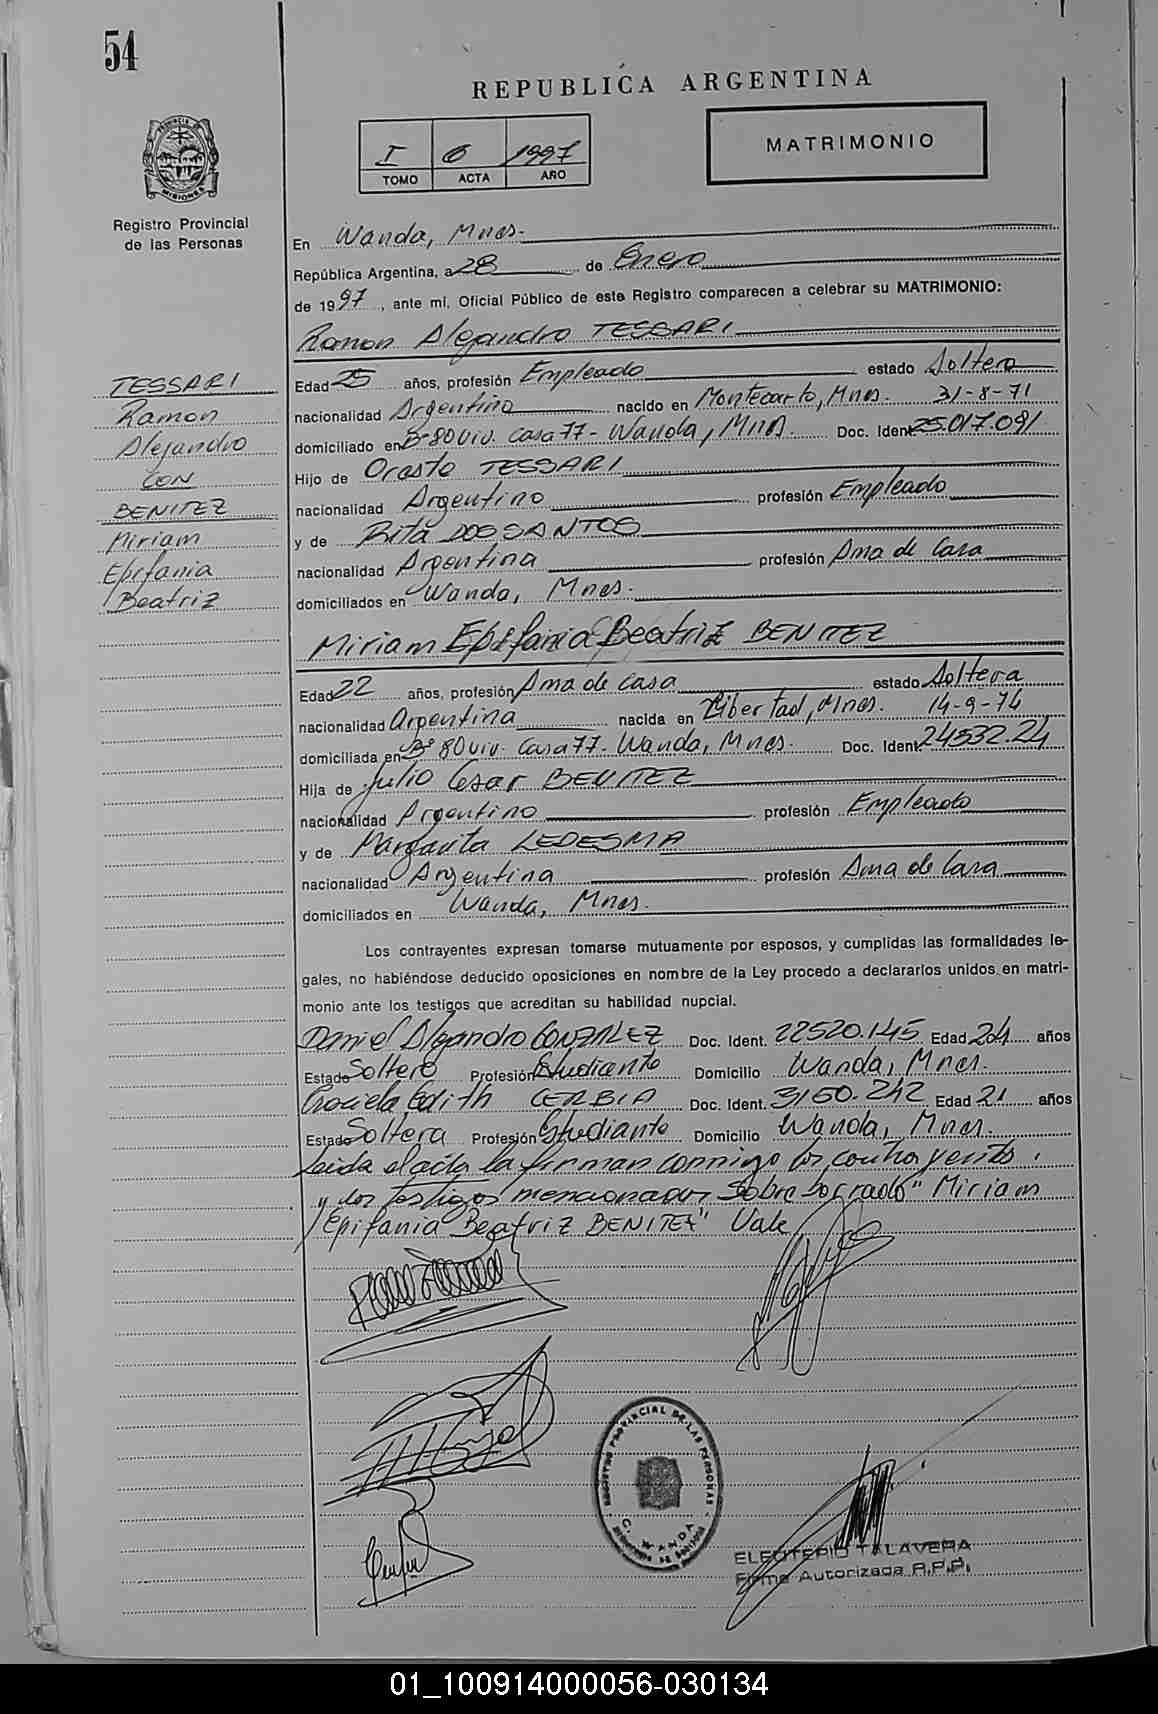 54
REPUBLICA ARGENTINA
I 6 1997
TOMO ACTA AÑO
MATRIMONIO
PROVINCIA DE MISIONES
Registro Provincial
de las Personas
En Wanda, Mnes.
República Argentina, a 28 de Enero
de 1997, ante mí, Oficial Público de este Registro comparecen a celebrar su MATRIMONIO:
Ramon Alejandro TESSARI
TESSARI
Ramon
Alejandro
CON
BENITEZ
Miriam
Epifania
Beatriz
Edad 25 años, profesión Empleado estado Soltero
nacionalidad Argentino nacido en Montecarlo, Mnes. 31-8-71
domiciliado en Bº 80 Viv. Casa 77 - Wanda, Mnes Doc. Ident. 25.017.091
Hijo de Oreste TESSARI
nacionalidad Argentino profesión Empleado
y de Rita DOS SANTOS
nacionalidad Argentina profesión Ama de Casa
domiciliados en Wanda, Mnes.
Miriam Epifania Beatriz BENITEZ
Edad 22 años, profesión Ama de casa estado Soltera
nacionalidad Argentina nacida en Libertad, Mnes. 14-9-74
domiciliada en Bº 80 Viv. Casa 77 - Wanda, Mnes. Doc. Ident.
Hija de Julio Cesar BENITEZ
nacionalidad Argentino profesión Empleado
y de Margarita LEDESMA
nacionalidad Argentina profesión Ama de Casa
domiciliados en Wanda, Mnes.
Los contrayentes expresan tomarse mutuamente por esposos, y cumplidas las formalidades le-
gales, no habiéndose deducido oposiciones en nombre de la Ley procedo a declararlos unidos en matri-
monio ante los testigos que acreditan su habilidad nupcial.
Daniel Alejandro GONZALEZ Doc. Ident. 22520.145 Edad 24 años
Estado Soltero Profesión Estudiante Domicilio Wanda, Mnes.
Graciela Edith CERBIA Doc. Ident. Edad 21 años
Estado Soltera Profesión Estudiante Domicilio Wanda, Mnes.
Leida el acta la firman conmigo los contrayentes
y los testigos mencionados Sobre borrado "Miriam
Epifania Beatriz BENITEZ" Vale
REGISTRO PROVINCIAL DE LAS PERSONAS
WANDA
ELEOTERIO TALAVERA
Firma Autorizada R.P.P.
01_100914000056-030134